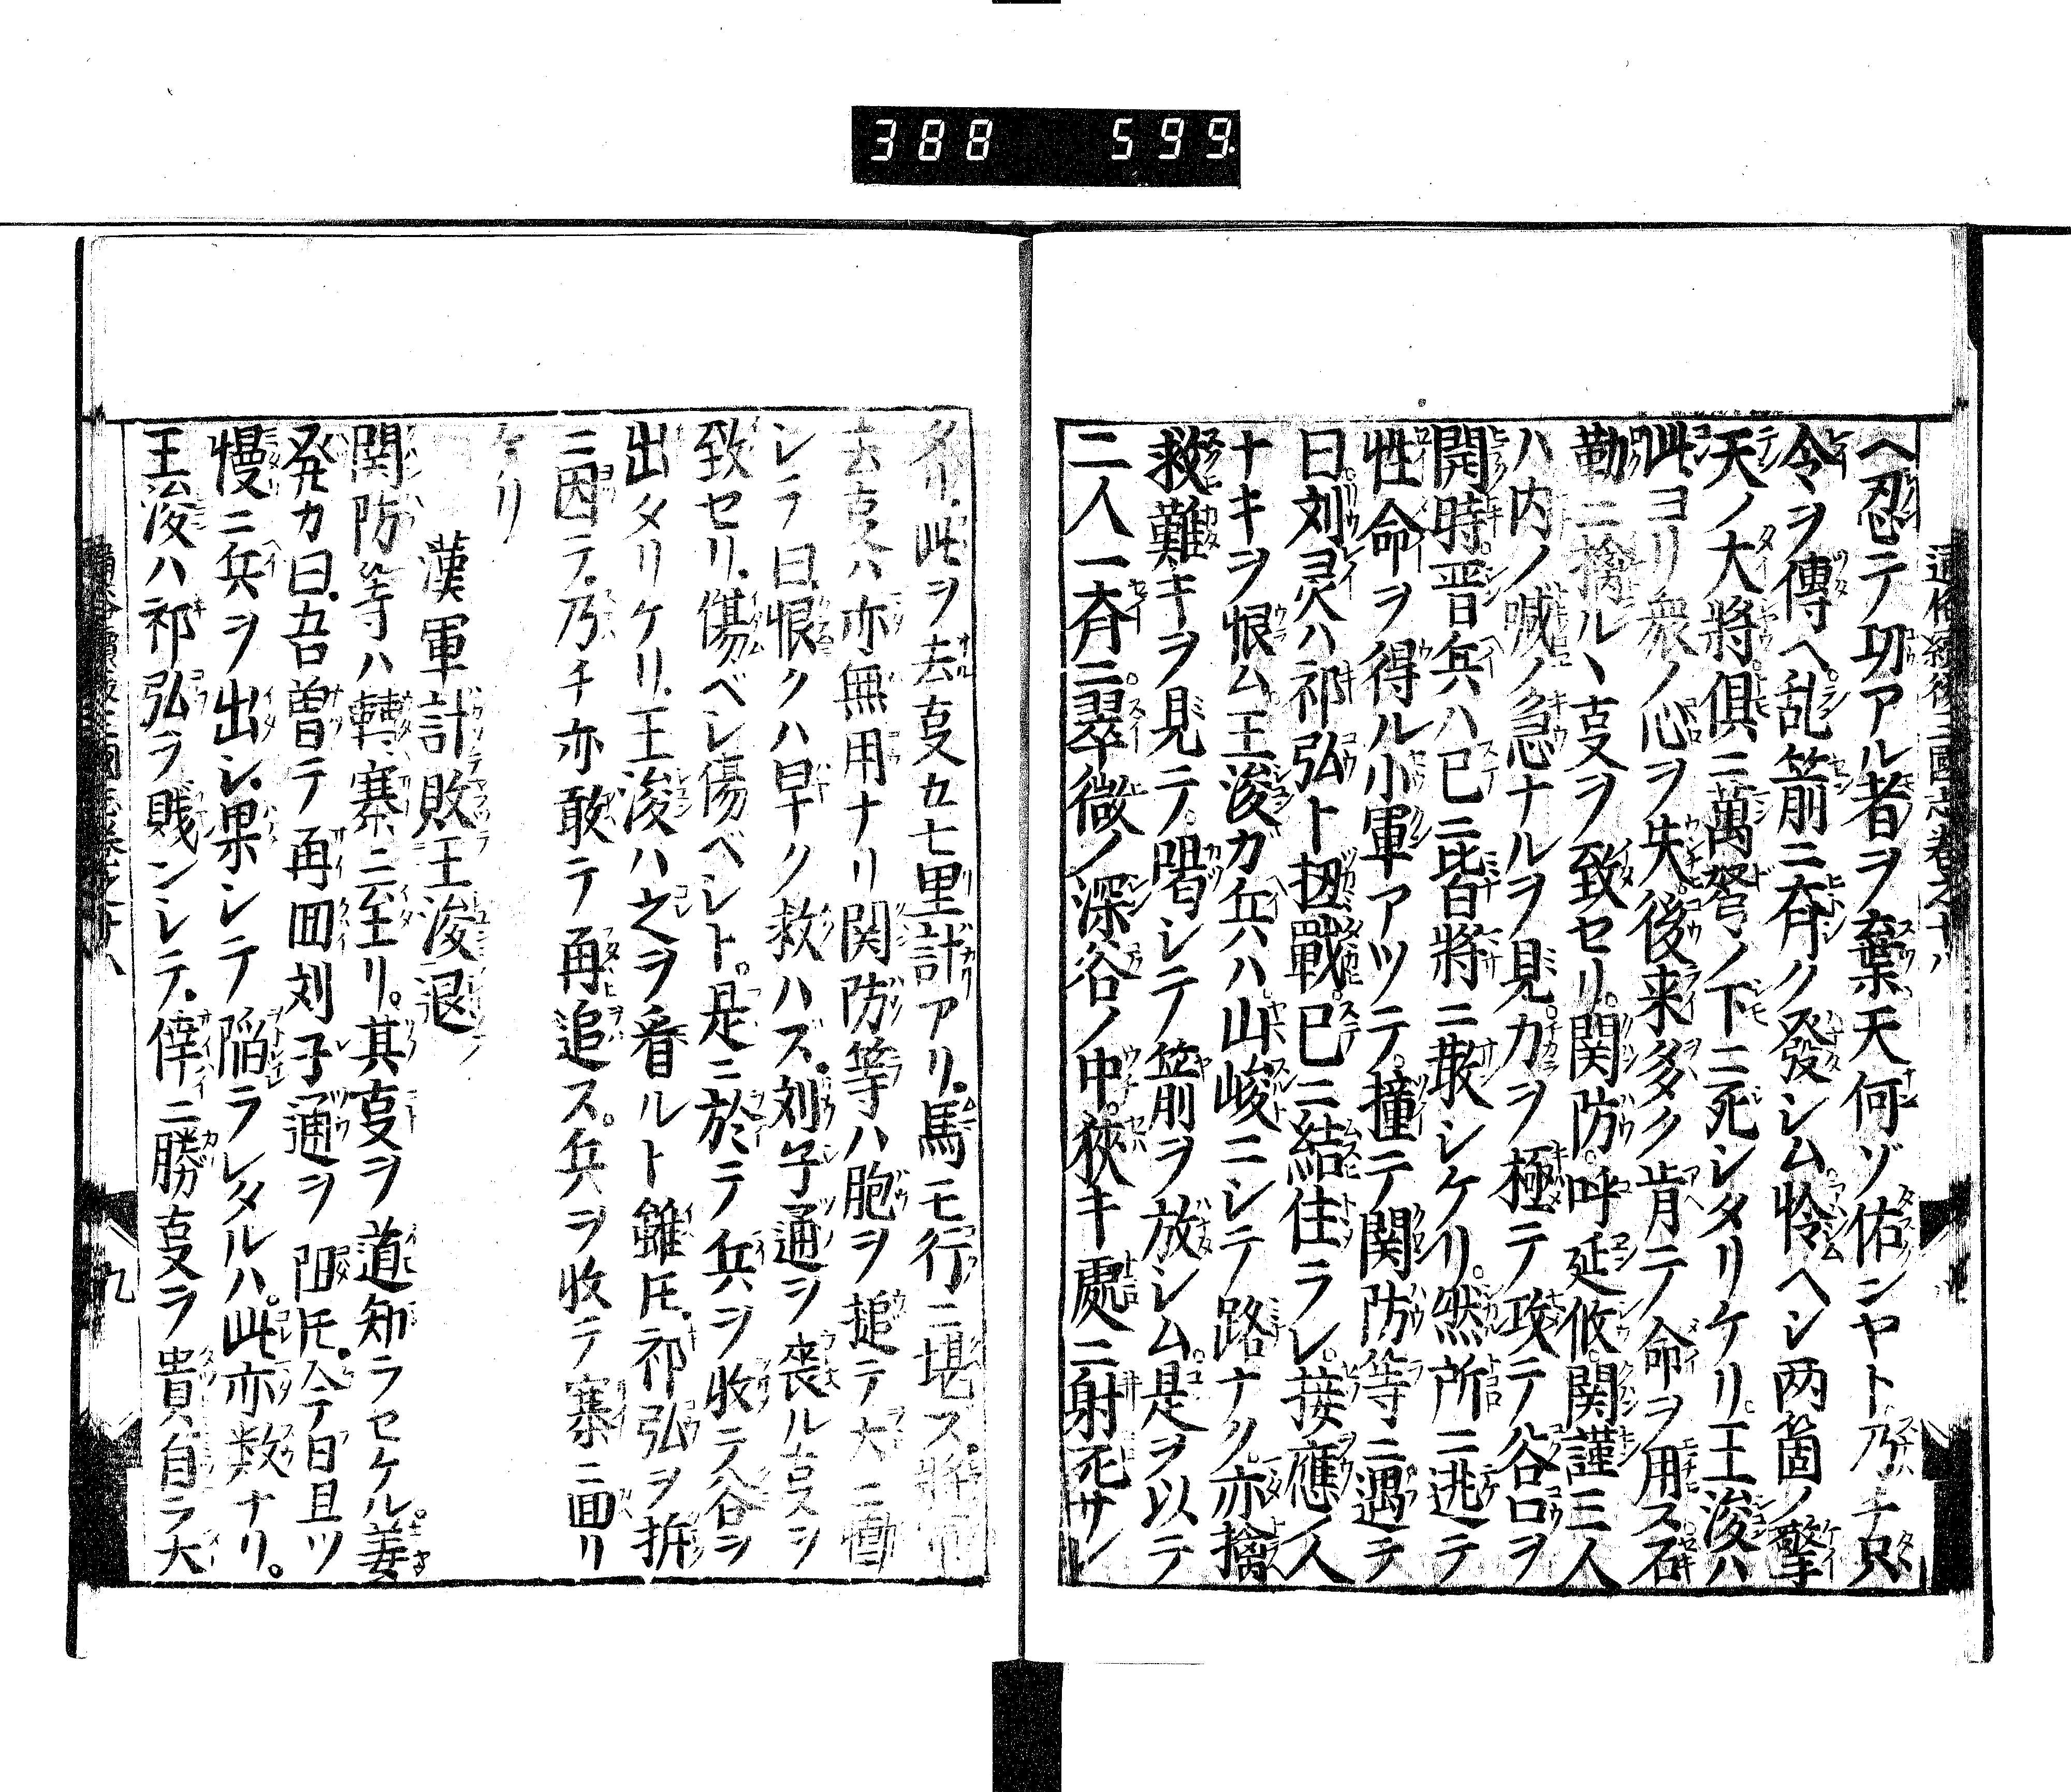 388 599
通俗續後三國志卷之十八
ヘ忍テ功アル者ヲ棄天何ゾ佑ンヤト乃チ只
令ヲ傳ヘ乱箭ニ斉ク發シム怜ヘシ两箇ノ擎
天ノ大將俱ニ萬弩ノ下ニ死シタリケリ王浚ハ
此ヨリ衆ノ心ヲ失後来多ク肯テ命ヲ用ス石
勒ニ擒ルヽ㕝ヲ致セリ関防呼延攸関謹三人
ハ内ノ喊ノ急ナルヲ見力ヲ極テ攻テ谷口ヲ
開時晋兵ハ已ニ皆將ニ散シケリ然所ニ逃テ
性命ヲ得ル小軍アツテ撞テ関防等ニ遇テ
曰刘灵ハ祁弘ト扨戰已ニ結住ラレ接應ノ人
ナキヲ恨ム王浚ガ兵ハ山峻ニシテ路ナク亦擒
救難キヲ見テ喝シテ箭ヲ放シム是ヲ以テ
二人一斉ニ翠微ノ深谷ノ中狹キ處ニ射死サレ
タリ此ヲ去㕝九七里計アリ馬モ行ニ堪ズ
去㕝ハ亦無用ナリ関防等ハ胞ヲ搥テ大ニ慟
シテ曰恨クハ早ク救ハズ刘子通ヲ喪ル㕝ヲ
致セリ傷ベシ傷ベシト是ニ於テ兵ヲ收テ谷ヲ
出タリケリ王浚ハ之ヲ看ルト雖㞮祁弘ヲ折
ニ因テ乃チ亦敢テ再追ス兵ヲ收テ寨ニ囬リ
ケリ
漢軍計敗王浚退
関防等ハ轉寨ニ至リ其㕝ヲ道知ラセケル姜
発カ曰吾曽テ再囬刘子通ヲ阻㞮今日且ツ
慢ニ兵ヲ出シ果シテ陥ラレタルハ此亦数ナリ
王浚ハ祁弘ヲ賎ンシテ倖ニ勝㕝ヲ貴自ラ大
九